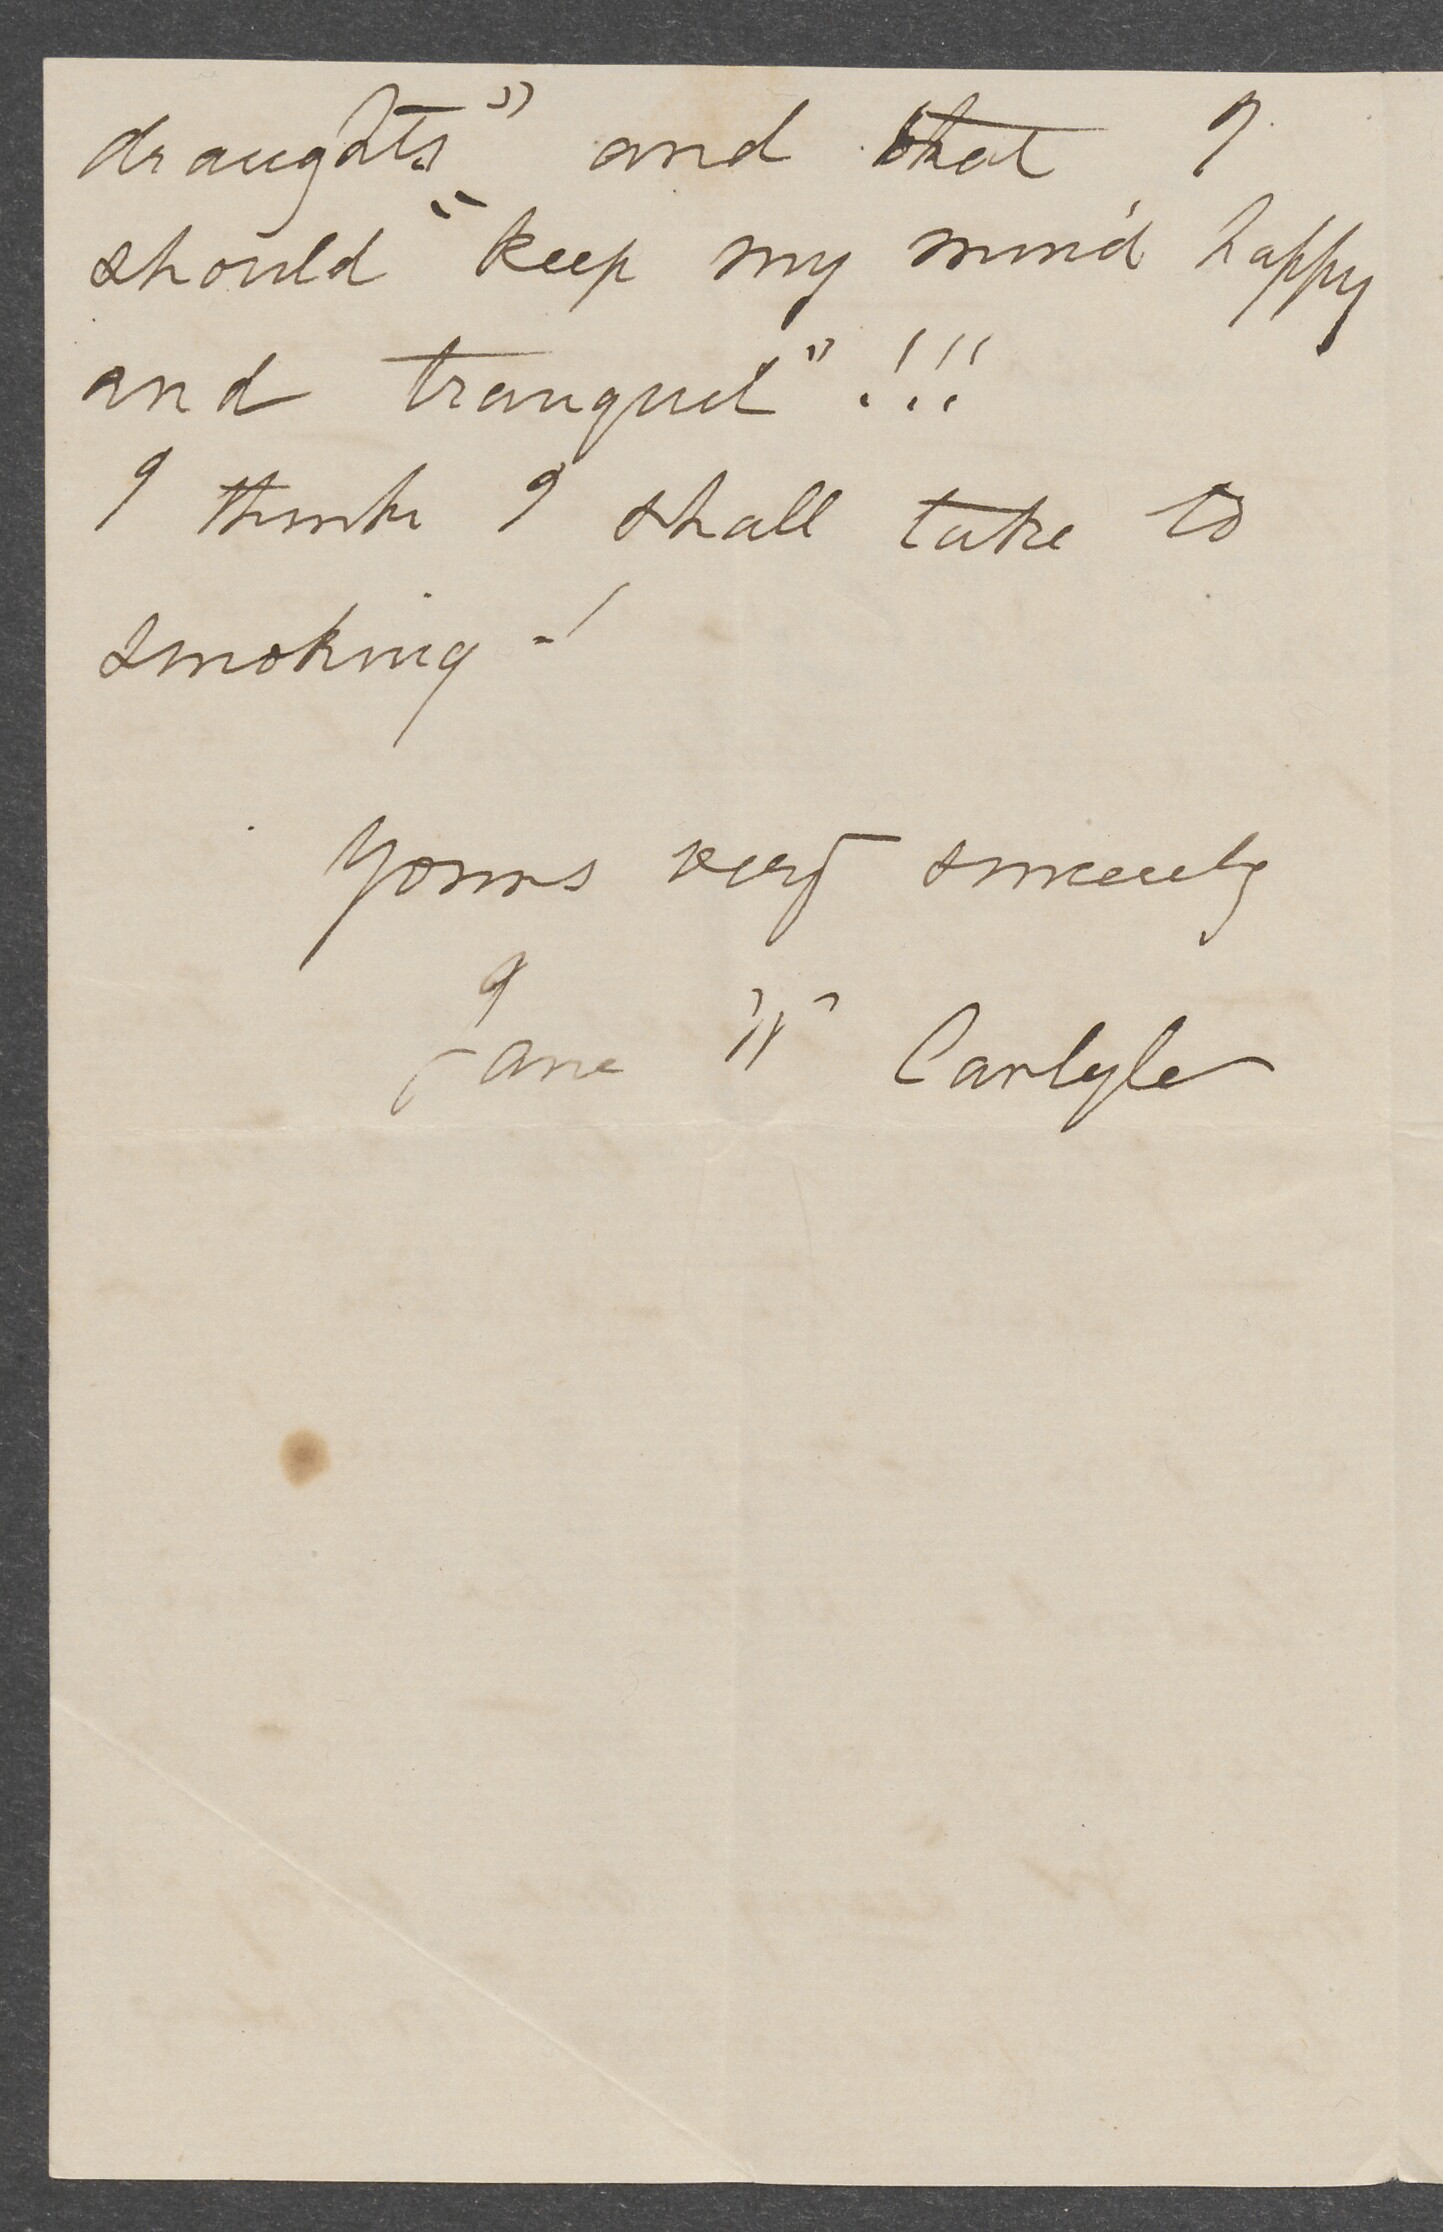 draughts" and that I
should "keep my mind happy
and tranquil" !!!
I think I shall take to
smoking -!
Yours very sincerely
Jane W Carlyle